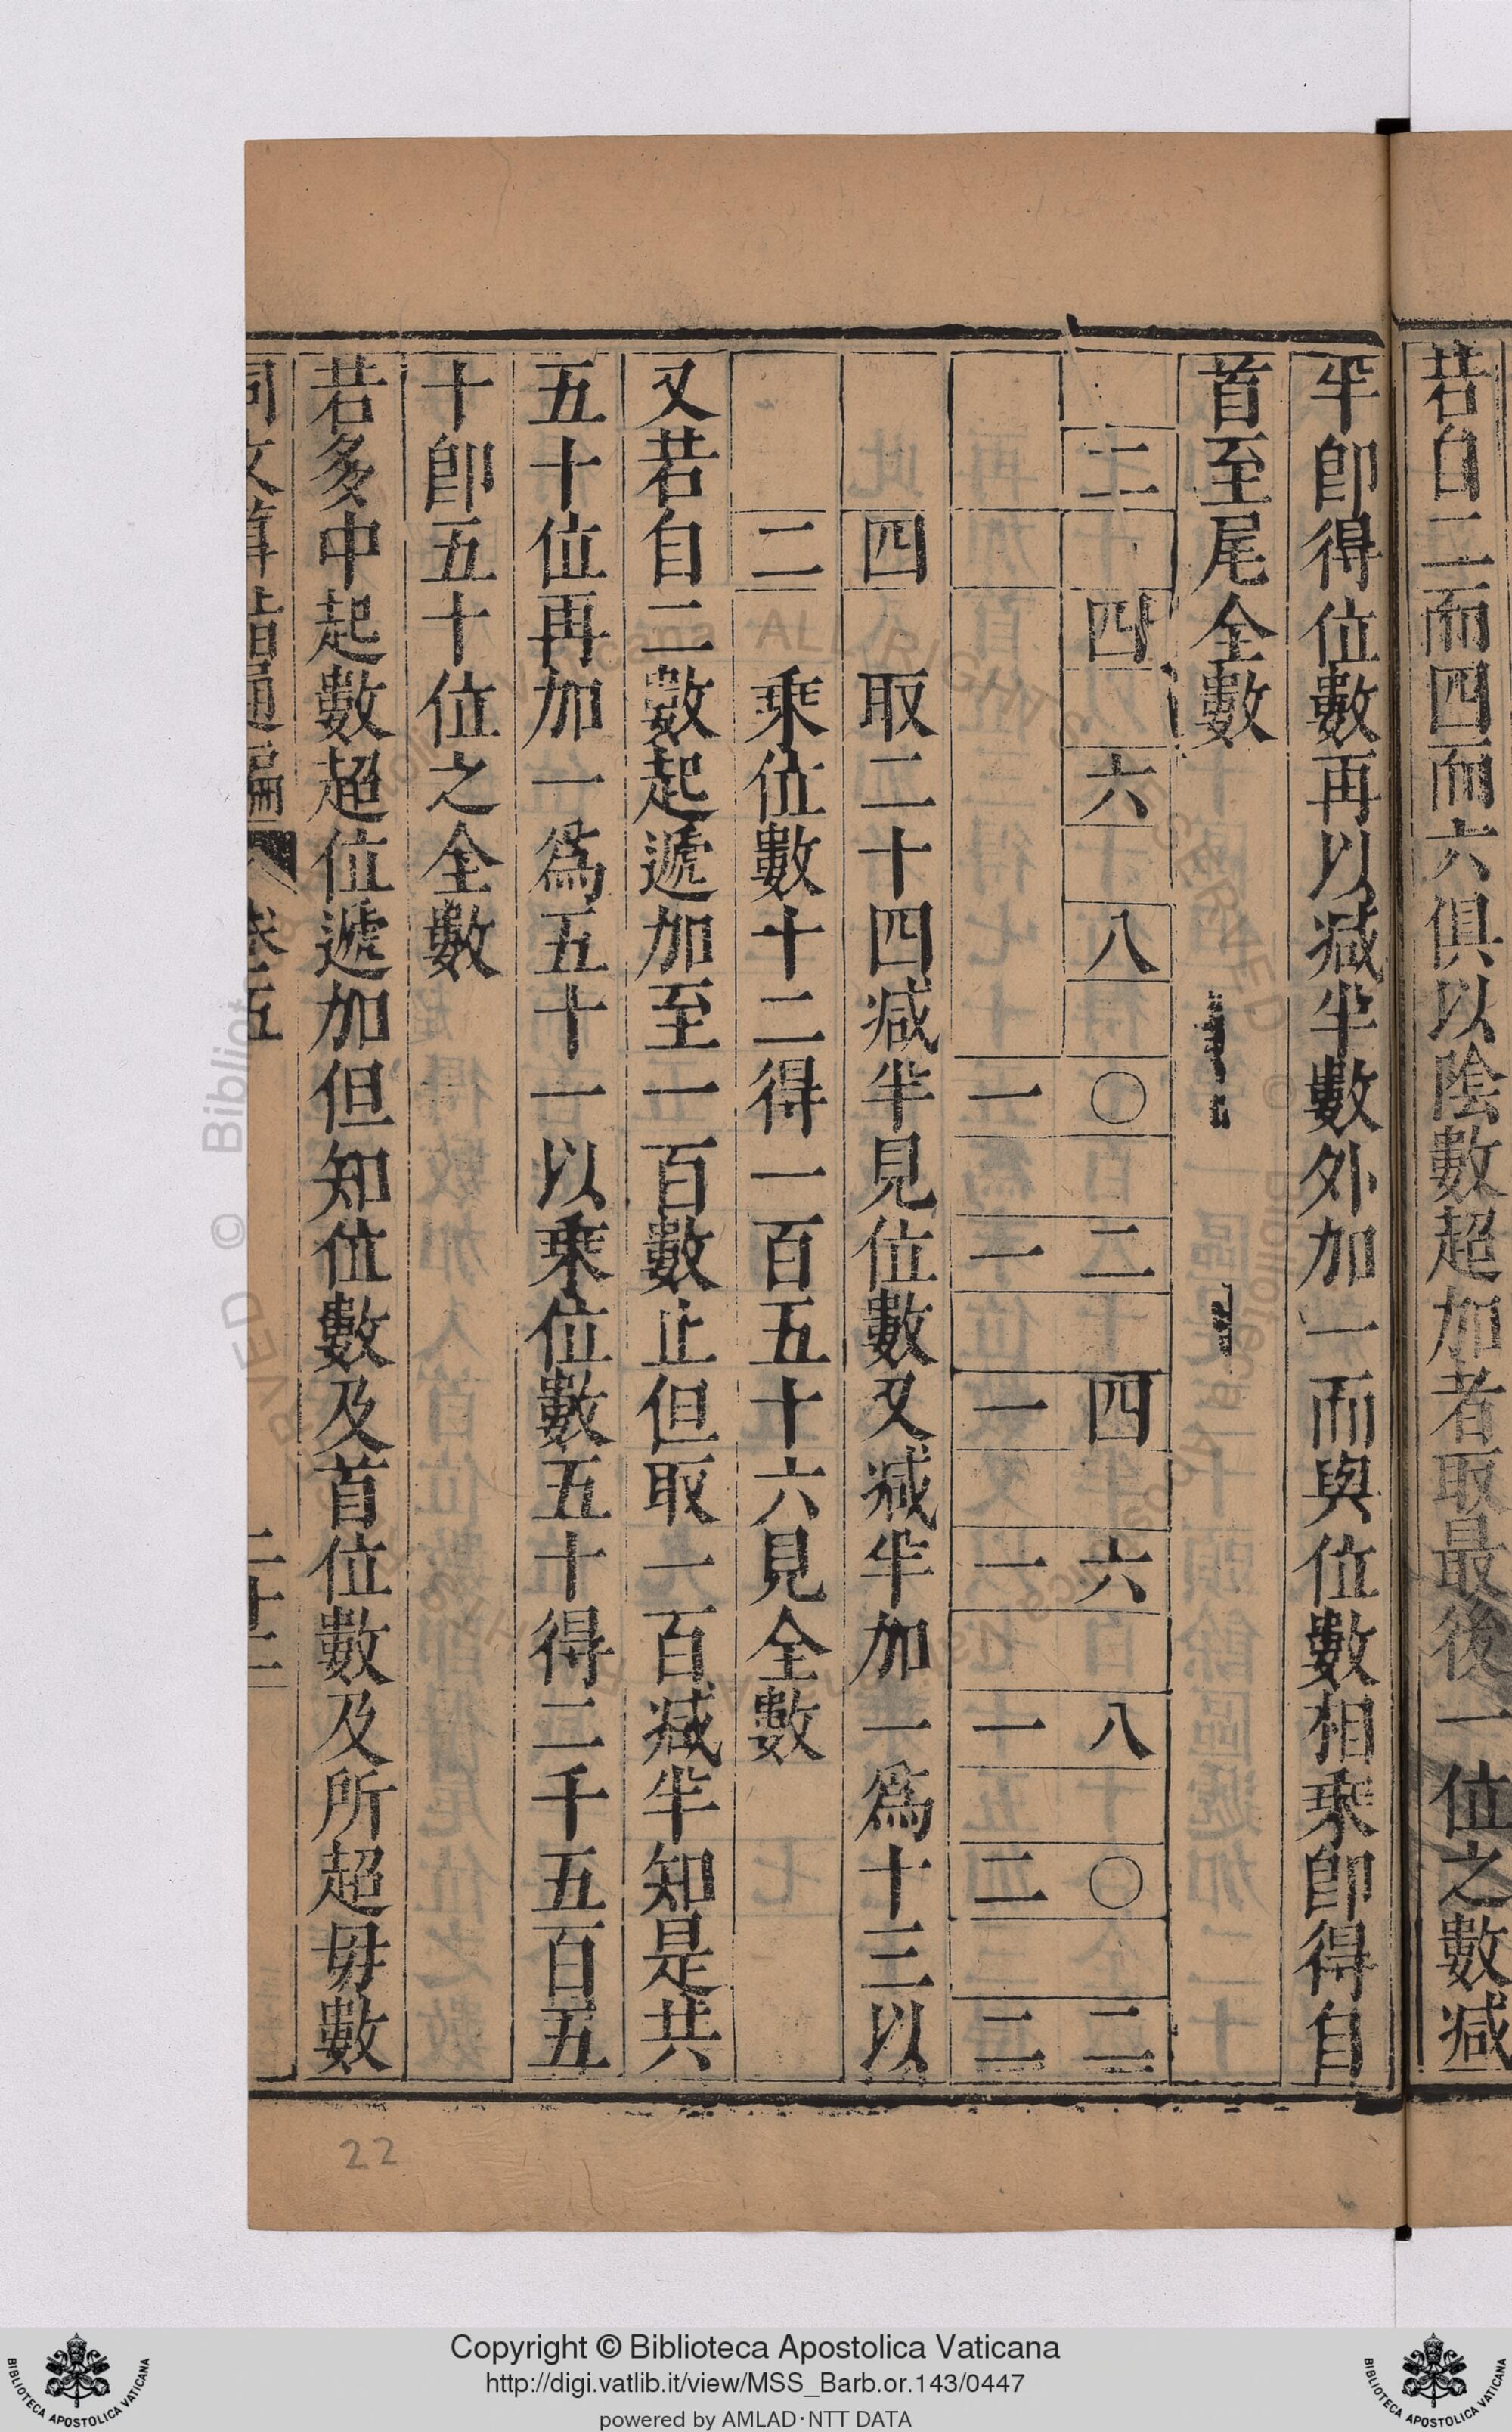 若自二而四而六俱以陰數超加者取最後一位之數減
半即得位數再以減半數外加一而與位數相乘即得自
首至尾全數
二 四 六 八 〇 二 四 六 八 〇 二
一 一 一 一 一 二 二
四 取二十四減半見位數又減半加一為十三以
二 乘位數十二得一百五十六見全數
又若自二數起遞加至一百數止但取一百減半知是共
五十位再加一為五十一以乘位數五十得二千五百五
十即五十位之全數
若多中起數超位遞加但知位數及首位數及所超毋數
同文算指通編 卷五 二十二
22
Copyright © Biblioteca Apostolica Vaticana
http://digi.vatlib.it/view/MSS_Barb.or.143/0447
powered by AMLAD·NTT DATA
BIBLIOTECA APOSTOLICA VATICANA
BIBLIOTECA APOSTOLICA VATICANA